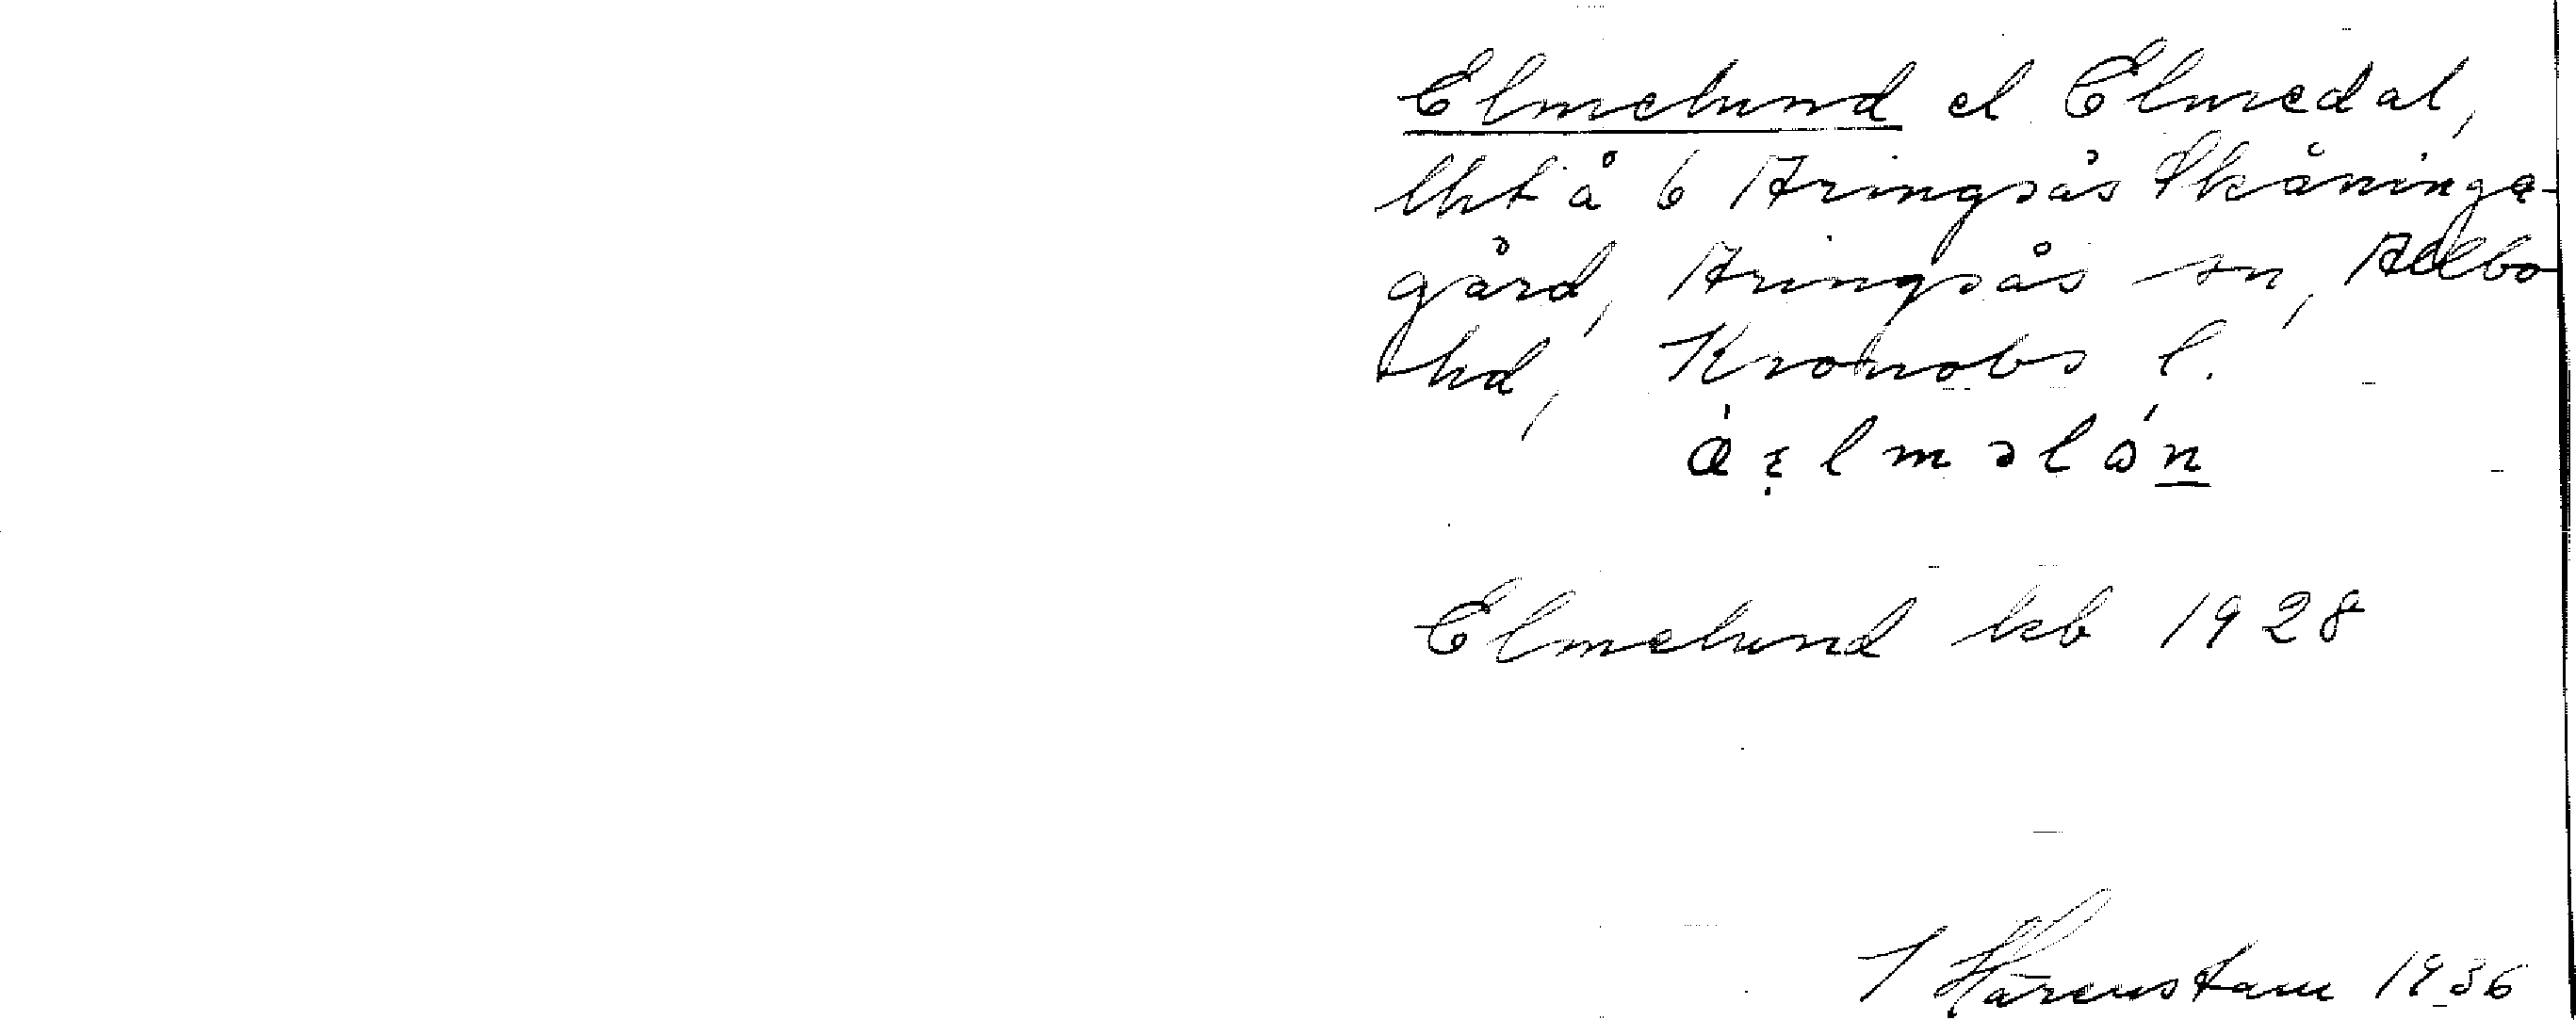 Elmelund el Elmedal,
lht å 6 Aringsås Skåninga-
gård, Aringsås sn, Allbo
hd, Kronobs l.
Elmelund kb 1928
J Härenstam 1936